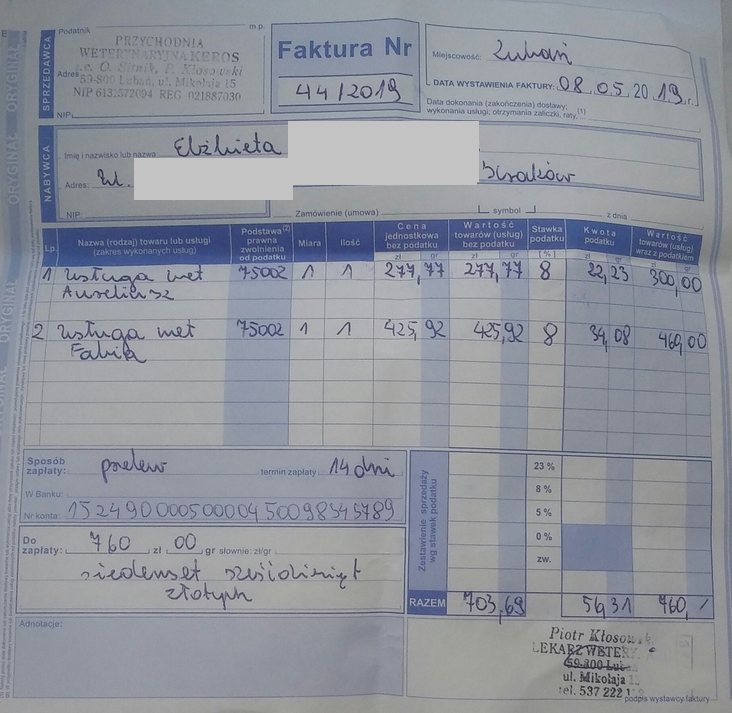 ORYGINAŁ ORYGINAŁ ORYGINAŁ
SPRZEDAWCA
Podatnik m.p.
PRZYCHODNIA
WETERYNARYJNA KEROS
s.c. O. P. Kłosowski
Adres 59-800 Lubań, ul. Mikołaja 15
NIP 6131572094 REG 021887030
NIP:
Faktura Nr
44/2019
Miejscowość: Lubań
DATA WYSTAWIENIA FAKTURY: 08.05.2019 r.
Data dokonania (zakończenia) dostawy;
wykonania usługi; otrzymania zaliczki, raty,... (1)
NABYWCA
Imię i nazwisko lub nazwa Elżbieta
Adres: ul.
NIP: Zamówienie (umowa) symbol z dnia
Lp. Nazwa (rodzaj) towaru lub usługi (zakres wykonanych usług) Podstawa (2) prawna zwolnienia od podatku Miara Ilość Cena jednostkowa bez podatku Wartość towarów (usług) bez podatku Stawka podatku Kwota podatku Wartość towarów (usług) wraz z podatkiem
zł gr zł gr [%] zł gr zł gr
1 usługa wet 75002 1 1 277,77 277,77 8 22,23 300,00
Aureliusz
2 usługa wet 75002 1 1 425,92 425,92 8 34,08 460,00
Fabia
Sposób zapłaty: przelew termin zapłaty 14 dni
W Banku:
Nr konta: 15249000050000450098545789
Do zapłaty: 760 zł 00 gr słownie: zł/gr
siedemset sześćdziesiąt
złotych
Zestawienie sprzedaży wg stawek podatku
23 %
8 %
5 %
0 %
zw.
RAZEM 703,69 56,31 760,-
Adnotacje:
Piotr
LEKARZ
59-800
ul. Mikołaja
tel. 537 222
podpis wystawcy faktury